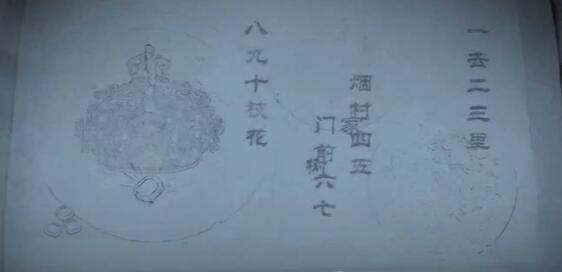 一去二三里
烟村四五家
门前六七树
八九十枝花